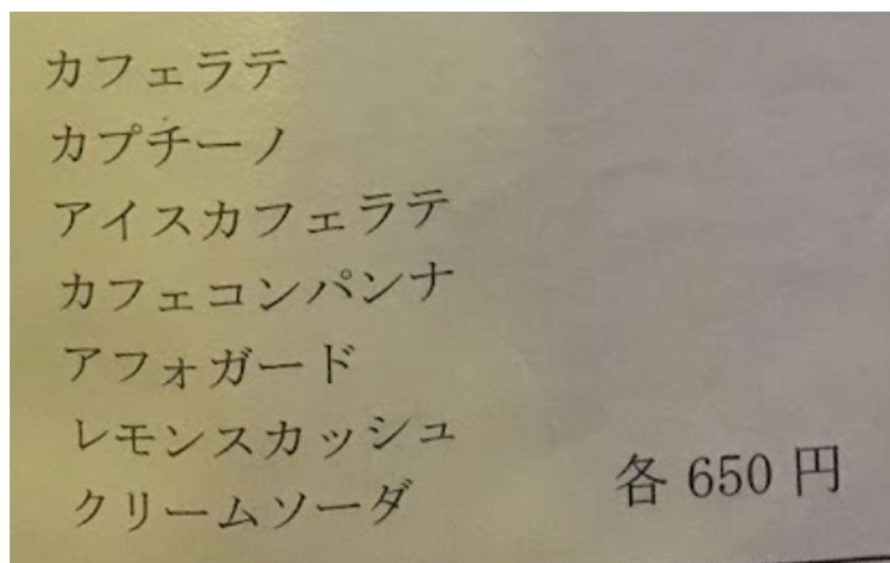 カフェラテ
カプチーノ
アイスカフェラテ
カフェコンパンナ
アフォガード
レモンスカッシュ
クリームソーダ
各 650 円